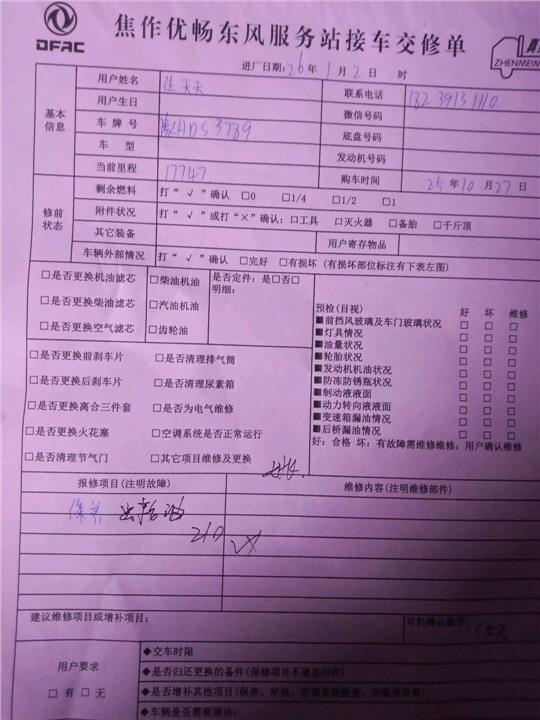 DFAC
焦作优畅东风服务站接车交修单
ZHENMEIM
进厂日期: 26 年 1 月 2 日 时
基本信息
用户姓名 天天 联系电话
用户生日 微信号码
车 牌 号 底盘号码
车 型 发动机号码
当前里程 17747 购车时间 25 年 10 月 27 日
修前状态
剩余燃料 打“ √ ”确认 □0 □1/4 □1/2 □1
附件状况 打“ √ ”或打“×”确认: □工具 □灭火器 □备胎 □千斤顶
其它装备 用户寄存物品
车辆外部情况 打“ √ ”确认 □完好 □有损坏 (有损坏部位标注有下表左图)
□是否更换机油滤芯 □柴油机油 是否定件: 是□否□
明细:
□是否更换柴油滤芯 □汽油机油
□是否更换空气滤芯 □齿轮油
预检(目视) 好 坏 维修
■前挡风玻璃及车门玻璃状况 □ □ □
■灯具情况 □ □ □
■油量状况 □ □ □
■轮胎状况 □ □ □
■发动机机油状况 □ □ □
■防冻防锈瓶状况 □ □ □
■制动液液面 □ □ □
■动力转向液液面 □ □ □
■变速箱漏油情况 □ □ □
■后桥漏油情况 □ □ □
好: 合格 坏: 有故障需维修维修: 用户确认维修
□是否更换前刹车片 □是否清理排气筒
□是否更换后刹车片 □是否清理尿素箱
□是否更换离合三件套 □是否为电气维修
□是否更换火花塞 □空调系统是否正常运行
□是否清理节气门 □其它项目维修及更换
报修项目(注明故障) 维修内容(注明维修部件)
保养 齿轮油
210
建议维修项目或增补项目: 司机确认签字:
用户要求
□ 有 □ 无
◆交车时限
◆是否归还更换的备件(保修项目不退还旧件)
◆是否增补其他项目(保养、年检、空调系统检查、加装项目等)
◆车辆是否需要清洁: